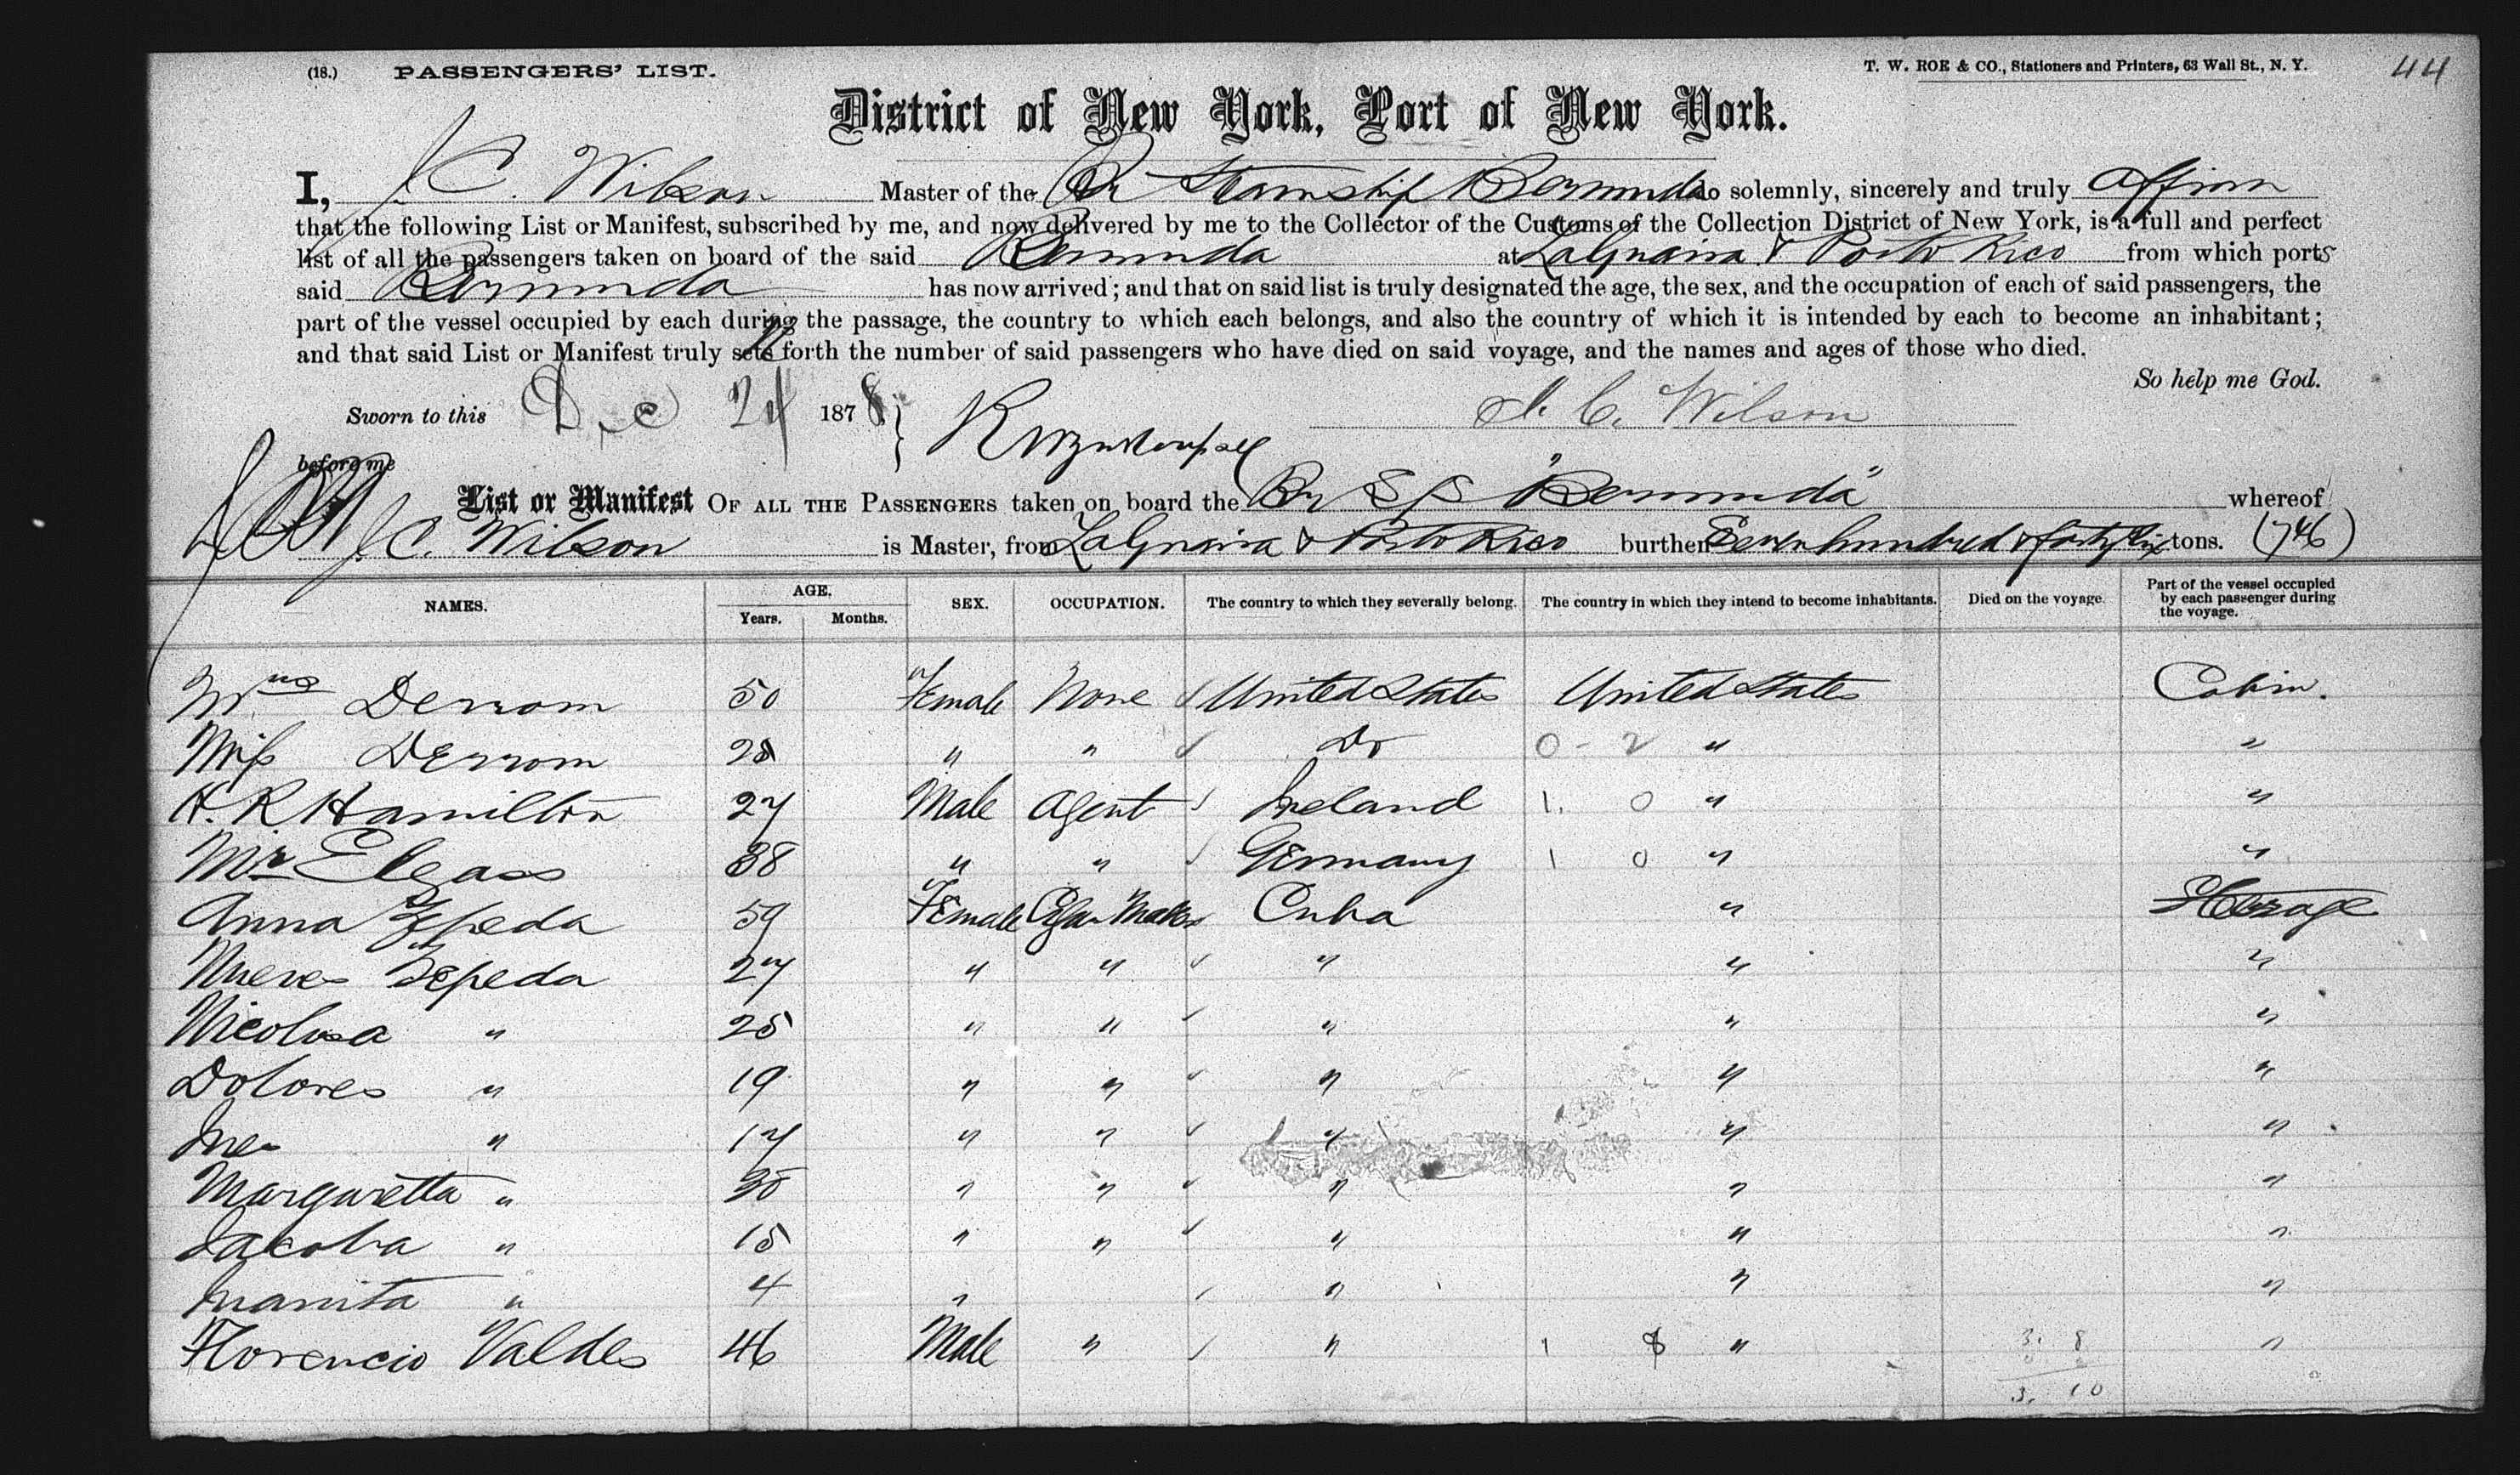 (18.) PASSENGERS' LIST. T. W. ROE & CO., Stationers and Printers, 63 Wall St., N. Y. 44
District of New York, Port of New York.
I, J. C. Wilson Master of the Br Steamship Bermuda do solemnly, sincerely and truly affirm
that the following List or Manifest, subscribed by me, and now delivered by me to the Collector of the Customs of the Collection District of New York, is a full and perfect
list of all the passengers taken on board of the said Bermuda at LaGuaira & Porto Rico from which ports
said Bermuda has now arrived; and that on said list is truly designated the age, the sex, and the occupation of each of said passengers, the
part of the vessel occupied by each during the passage, the country to which each belongs, and also the country of which it is intended by each to become an inhabitant;
and that said List or Manifest truly sets forth the number of said passengers who have died on said voyage, and the names and ages of those who died.
So help me God.
Sworn to this Dec 24 1878 } J. C. Wilson
before me
List or Manifest OF ALL THE PASSENGERS taken on board the Br S/S "Bermuda" whereof
J. C. Wilson is Master, from LaGuaira & Porto Rico burthen Seven hundred & forty six tons. (746)
NAMES. AGE. Years. Months. SEX. OCCUPATION. The country to which they severally belong. The country in which they intend to become inhabitants. Died on the voyage. Part of the vessel occupied by each passenger during the voyage.
Mrs Derrom 50 Female None United States United States Cabin.
Miss Derrom 28 " " Do 0 - 2 " "
H. R. Hamilton 27 Male Agent Ireland 1. 0 " "
Mr. Elgass 38 " " Germany 1 0 " "
Anna Zepeda 59 Female Cigar Maker Cuba " Steerage
Nueves Zepeda 27 " " " " "
Nicolasa " 25 " " " " "
Dolores " 19 " " " " "
Ines " 17 " " " " "
Margaretta " 35 " " " " "
Jacoba " 15 " " " " "
Juanita " 4 " " " "
Florencio Valdes 46 Male " " 1 8 " 3. 8 "
3. 10